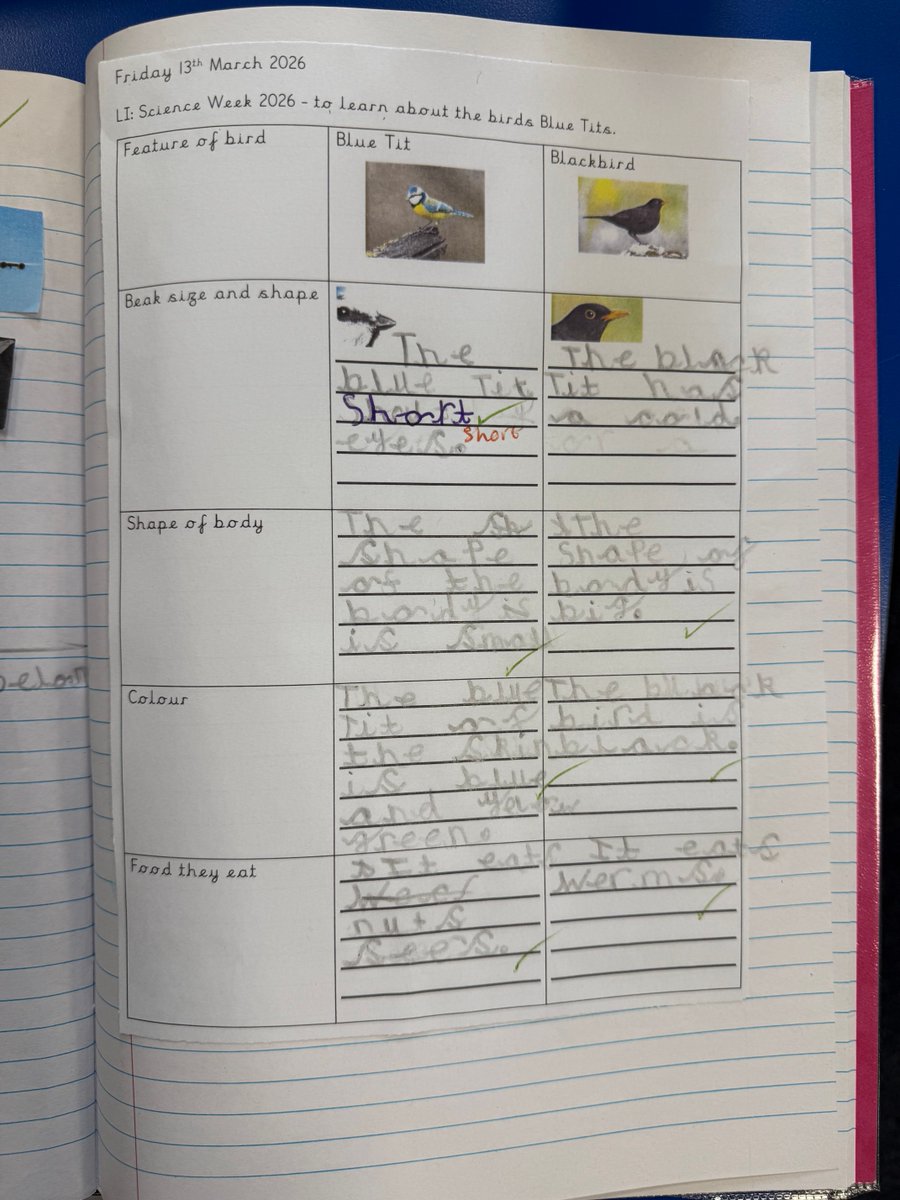 Friday 13th March 2026
LI: Science Week 2026 - to learn about the birds Blue Tits.
Feature of bird
Blue Tit
Blackbird
Beak size and shape
The
blue Tit
Short
short
eyes.
The black
Tit has
a
Shape of body
The Sh
shape
of the
body is
is small
The
shape of
body is
big.
Colour
The blue
Tit of
the skin
is blue
and
green.
The
bird is
black.
Food they eat
It eats
nuts
sees.
It eats
werms.